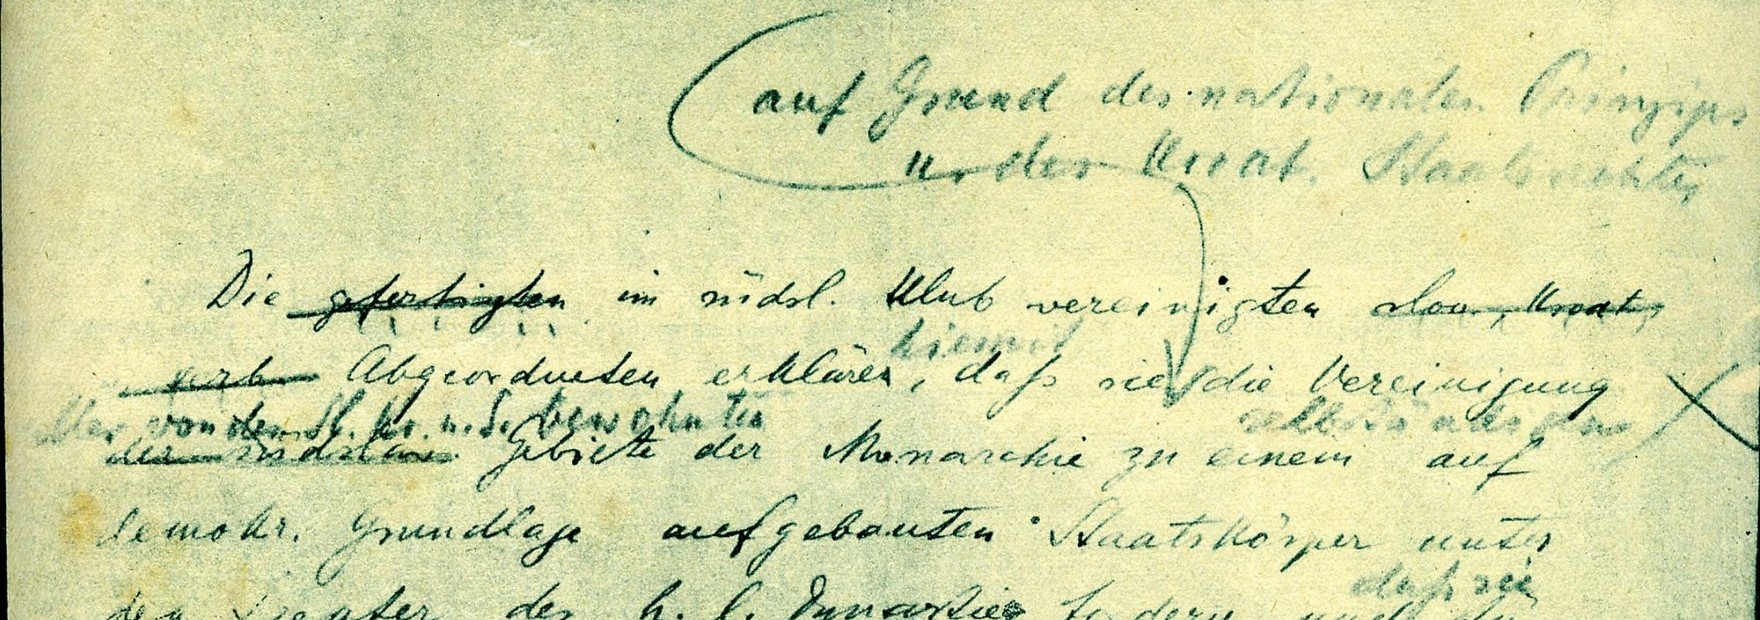 auf Grund des nationalen Prinzips
u. des kroat. Staatsrechtes
Die gefertigten im südsl. Klub vereinigten slov., kroat.,
hiemit
serb. Abgeordneten erklären, daß sie die Vereinigung
der von den Sl. Kr. u. S. bewohnten selbständigen
der südslav. Gebiete der Monarchie zu einem auf
demokr. Grundlage aufgebauten Staatskörper unter
daß sie
den Szepter der h. l. Dynastie fordern und